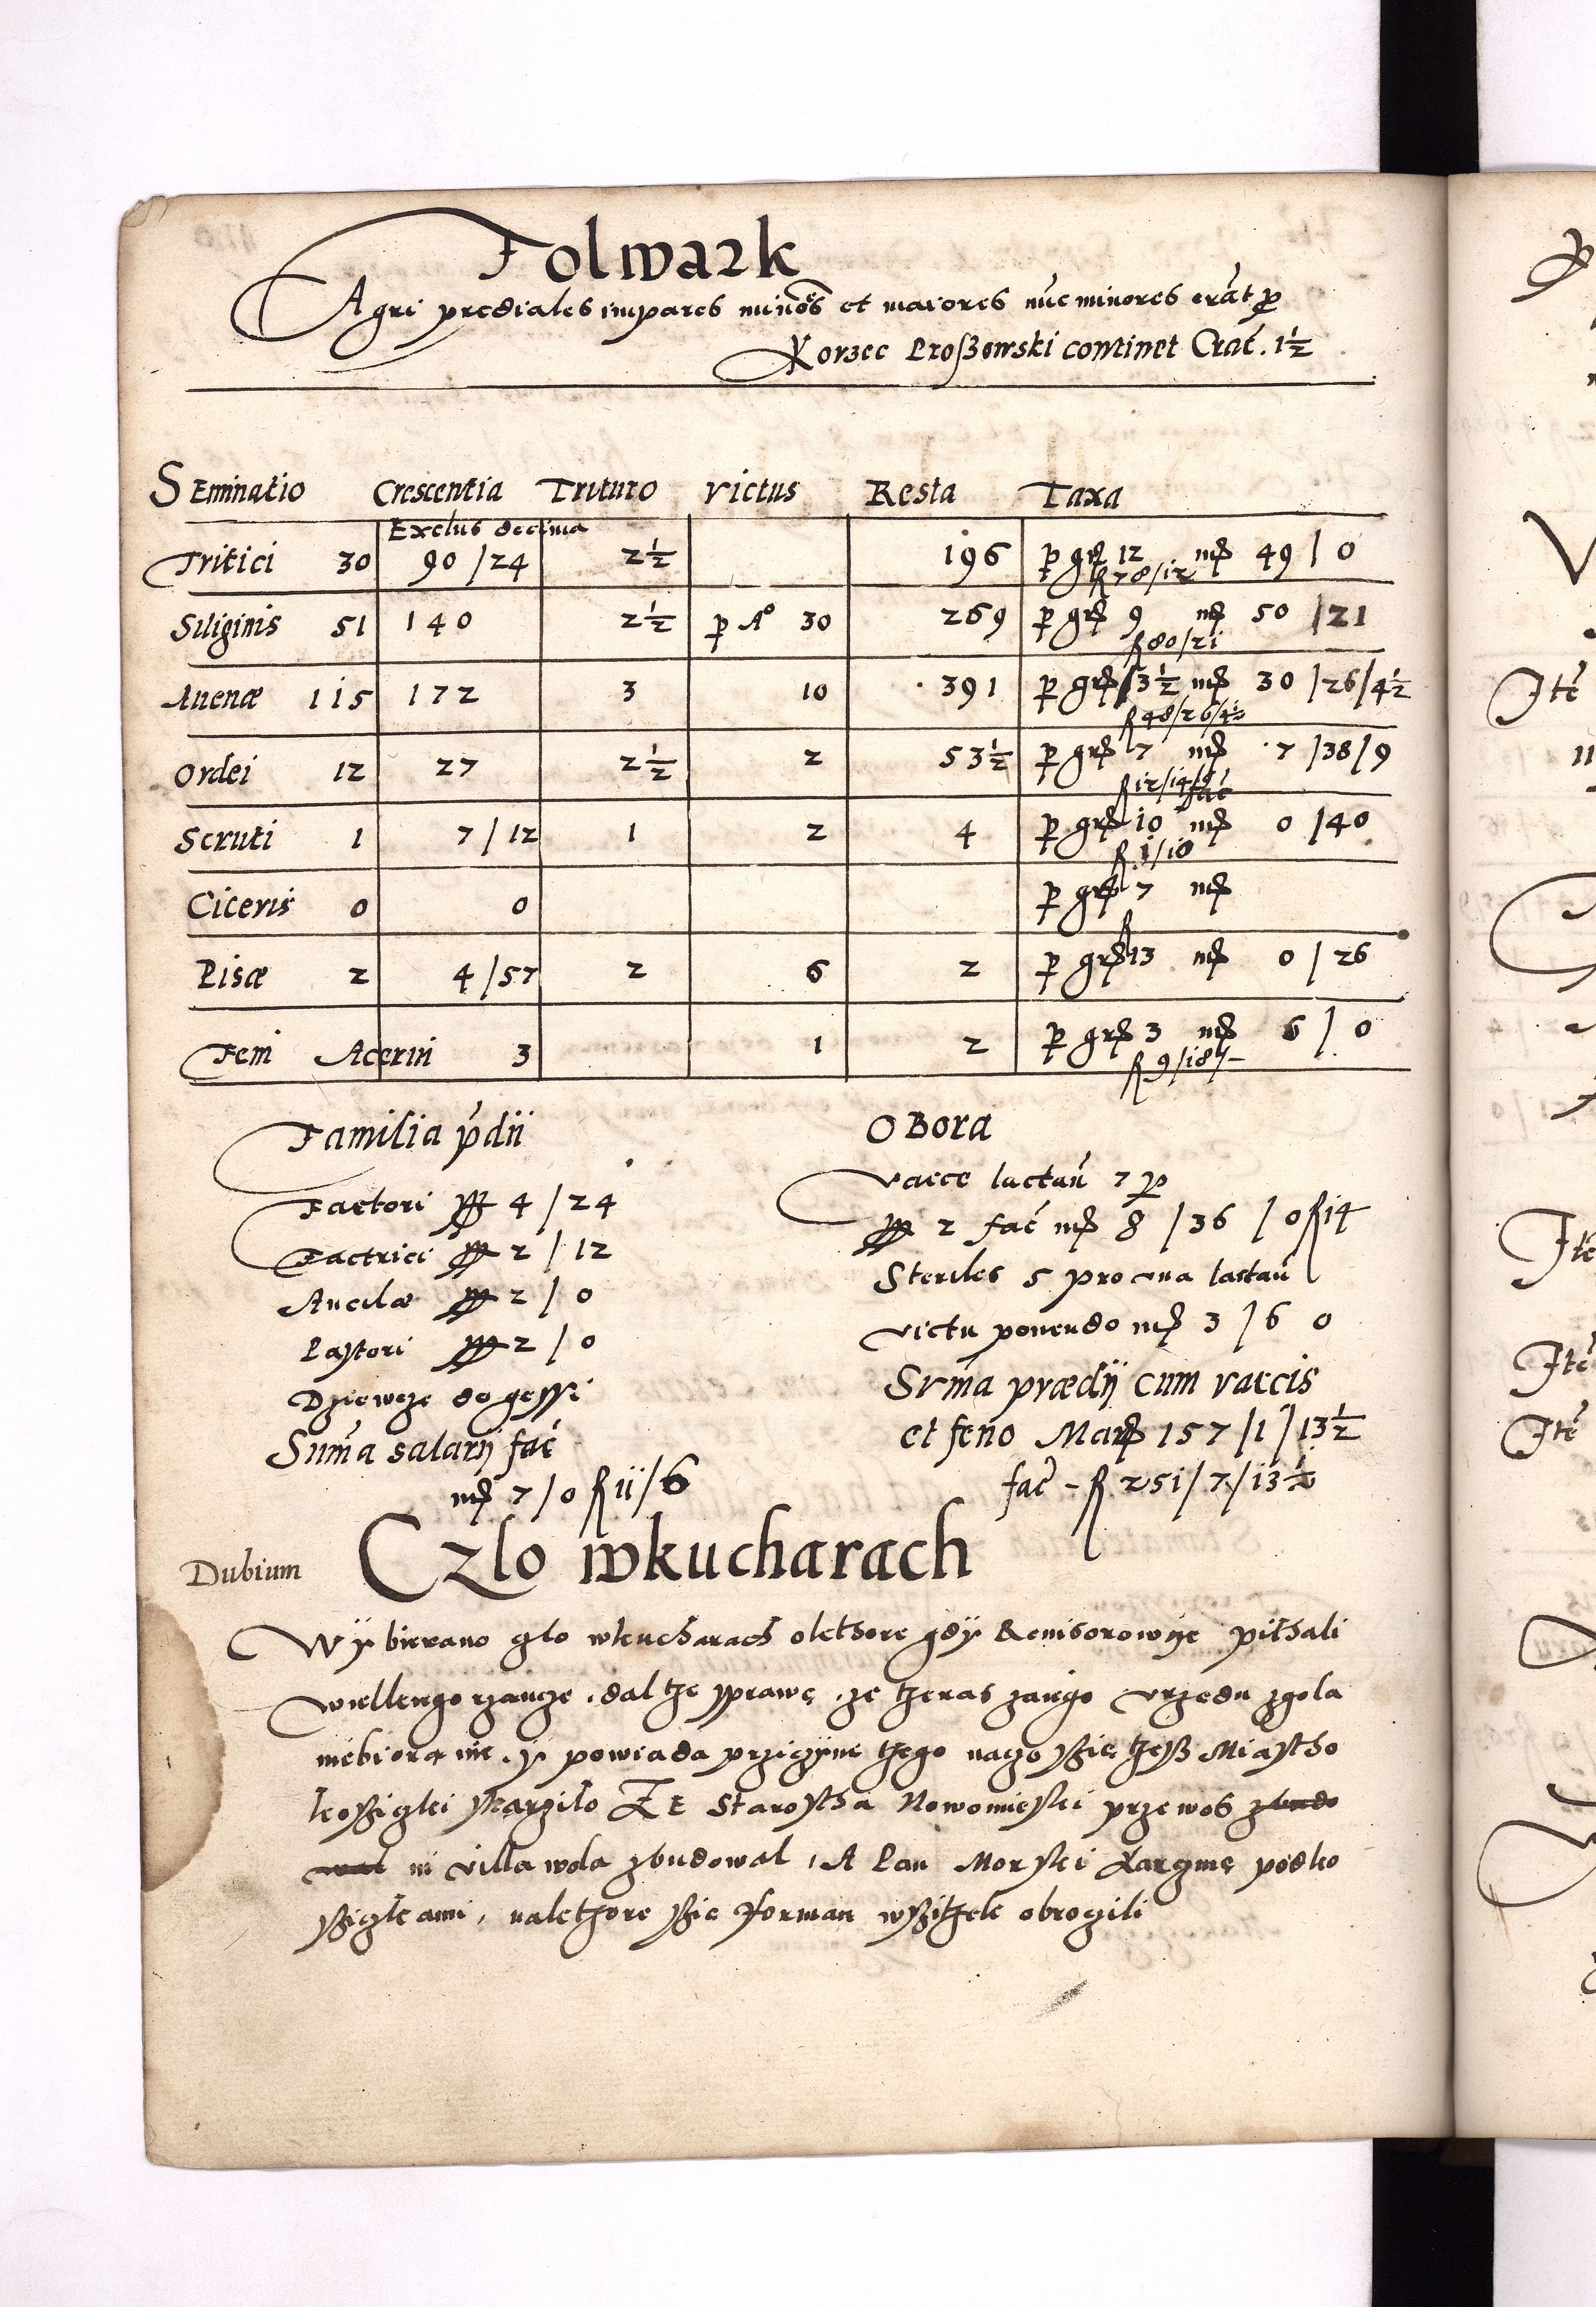 Folwark
Agri prediales impares minōēs et maiores nūc minores erāt p
Korzec Proßowski continet Crac̄. 1½
Seminatio Crescentia Trituro Victus Resta Taxa
Exclus decima
Tritici 30 90 /24 2½ 196 p grȝ 12 mȝ 49 / 0
f 78/12
Siliginis 51 140 2½ p Aº 30 269 p grȝ 9 mȝ 50 /21
f 80/21
Auenæ 115 172 3 10 391 p grȝ 3½ mȝ 30 /26/4½
f 48/26/4½
Ordei 12 27 2½ 2 53½ p grȝ 7 mȝ 7 /38/9
f 12/14/9
fac̄
Scruti 1 7 / 12 1 2 4 p grȝ 10 mȝ 0 /40
f 1/10
Ciceris 0 0 p grȝ 7 mȝ
Pisæ 2 4 /57 2 6 2 p grȝ 13 mȝ 0 / 26
Feni Acerui 3 1 2 p grȝ 3 mȝ 6 / 0
f 9/18/–
Familia p̄dii
Factori 4 / 24
Factrici 2 / 12
Ancilæ 2 / 0
Pastori 2 / 0
Dziewcze do gessi
Sum̄a salarij fac̄
mȝ 7 / 0 f 11/6
Obora
Vacce lactan̄ 7 p
2 fac̄ mȝ 8 /36 / 0 f 14
Steriles 5 pro una lactan̄
victu ponendo mȝ 3 / 6 0
Sum̄a prædij cum vaccis
et feno Marȝ 157 /1 / 13½
fac̄ – f 251/7/13½
Dubium
Czlo wkucharach
Wybierano czlo wkucharach okthore gdy Reuisorowije pithali
Wiellengo rzancze, dal tze sprawę, ze theras zaӥgo vrzedu zgola
niebiorą nic. y powiada prziczӱne thego naczo ßię theß Miastho
koßiczki skarzilo ZE Starostha Nowomieski przewos zbudo
wal ni villa wola zbudowal, A Pan Morski Karczmę podko
ßiczkami, nakthore ßie forman wßithek obroczili